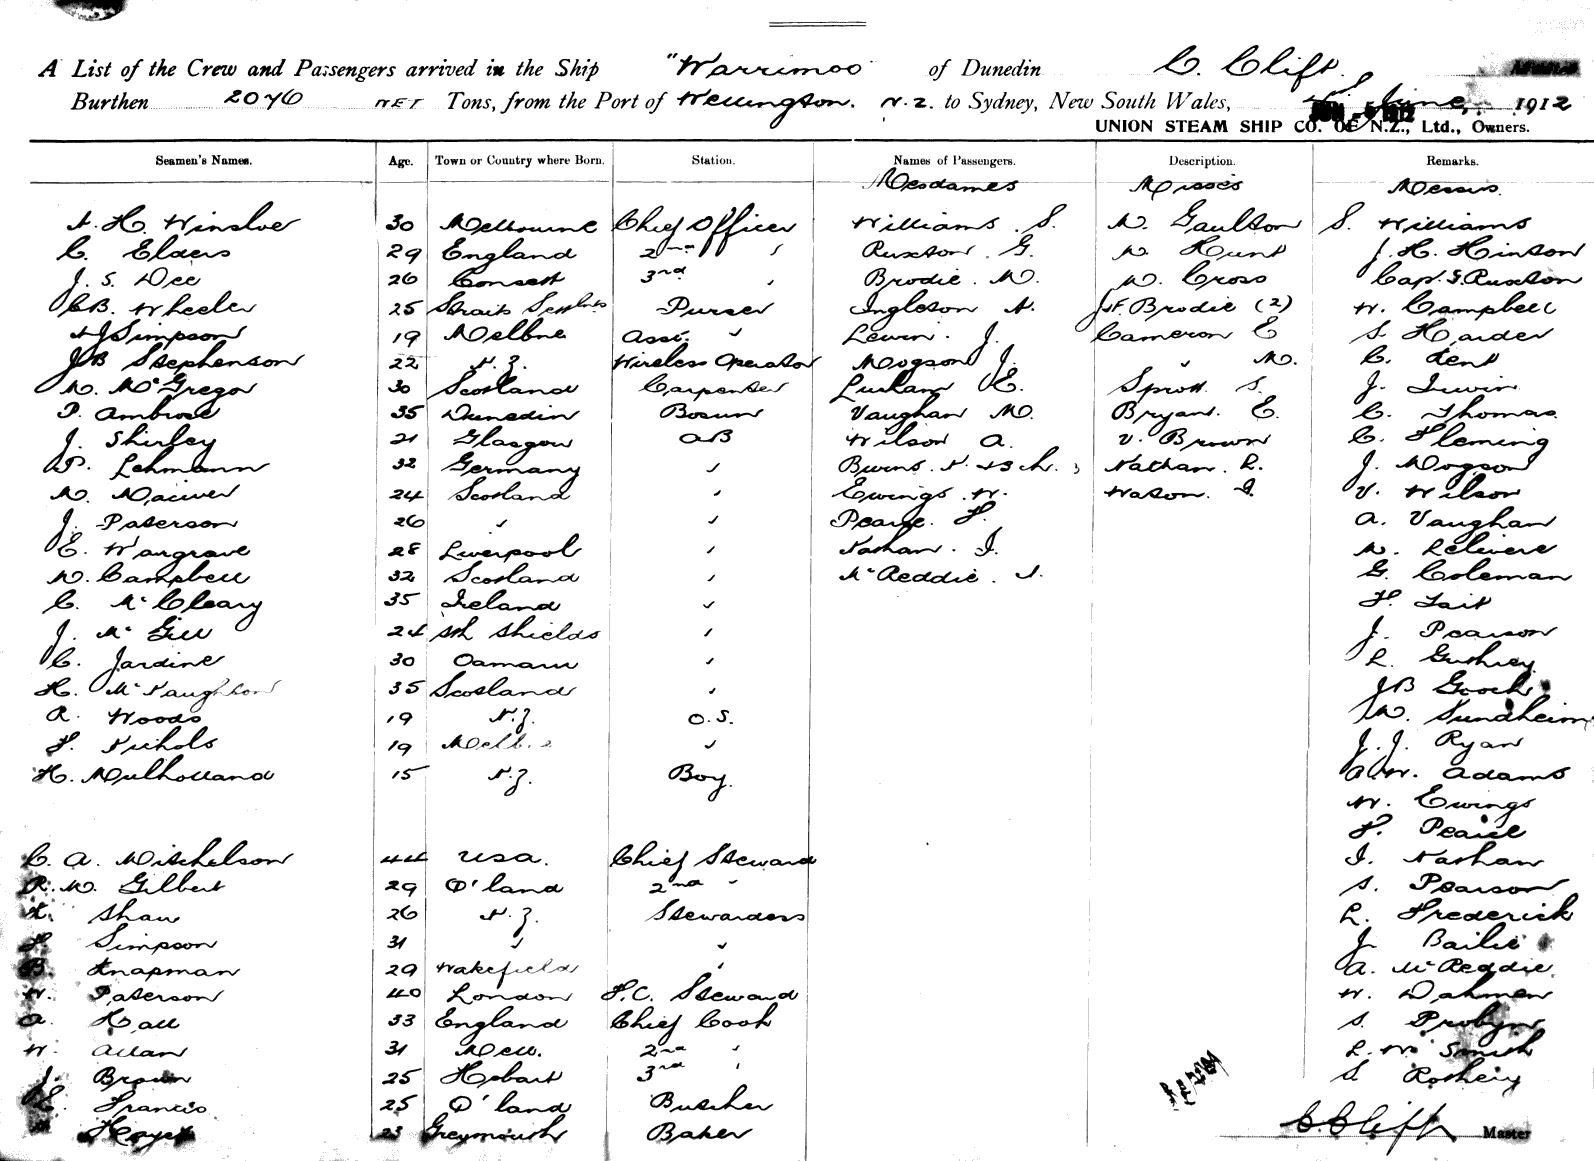 A List of the Crew and Passengers arrived in the Ship "Warrimoo" of Dunedin C. Clift
Burthen 2076 NET Tons, from the Port of Wellington. N.Z. to Sydney, New South Wales, June, 1912
UNION STEAM SHIP CO. OF N.Z., Ltd., Owners.
Seamen's Names. Age. Town or Country where Born. Station. Names of Passengers. Description. Remarks.
Mesdames Misses Messrs.
A. H. Winsloe 30 Melbourne Chief Officer Williams. S. M. Gaulton S. Williams
C. Elders 29 England 2nd " Ruxton. G. M. Hunt J. H. Hinton
J. S. Dee 26 Consett 3rd " Brodie. M. M. Cross Cap. G. Ruxton
C.B. Wheeler 25 Straits Purser Ingleton A. Brodie (2) W. Campbell
A J Simpson 19 Melbne Asst. " Lewin. J. Cameron E S. Harder
J B Stephenson 22 N.Z. Wireless Operator Mogson J. " M. C. Kent
M. McGregor 30 Scotland Carpenter E. Sprott S. J. Irwin
P. Ambrose 35 Dunedin Bosun Vaughan M. Bryant. E. C. Thomas
J. Shirley 21 Glasgow AB Wilson A. V. Brown C. Fleming
P. Lehmann 32 Germany " Burns. N. Nathan. R. J. Mogson
M. 24 Scotland " Ewings W. Watson. I. V. Wilson
J. Paterson 26 " " Pearce. F. A. Vaughan
E. Wargrave 28 Liverpool " Nathan. I. M.
M. Campbell 32 Scotland " McReddie. G. Coleman
C. McCleary 35 Ireland " F. Tait
J. McGill 24 Sth Shields " J. Pearson
C. Jardine 30 Oamaru " R. Guthrey
H. McNaughton 35 Scotland " J B Gooch
A. Woods 19 N.Z. O.S. M. Sundheim
F. Nichols 19 Melb. " J. J. Ryan
H. Mulholland 15 N.Z. Boy. A W. Adams
W. Ewings
F. Pearce
C. A. Mitchelson 44 USA. Chief Steward I. Nathan
R. M. Gilbert 29 Q'land 2nd " S. Pearson
Shaw 26 N.Z. Stewardess R. Frederick
F. Simpson 31 " " J. Bailie
B. Knapman 29 Wakefield " A. McReddie
W. Paterson 40 London F.C. Steward W. Dahmen
A. Hall 33 England Chief Cook S. Probyn
W. Allan 31 Melb. 2nd " R. W. Smith
J. Brown 25 Hobart 3rd " S. Rothery
Francis 25 Q'land Butcher
Hayes 23 Greymouth Baker C Clift Master